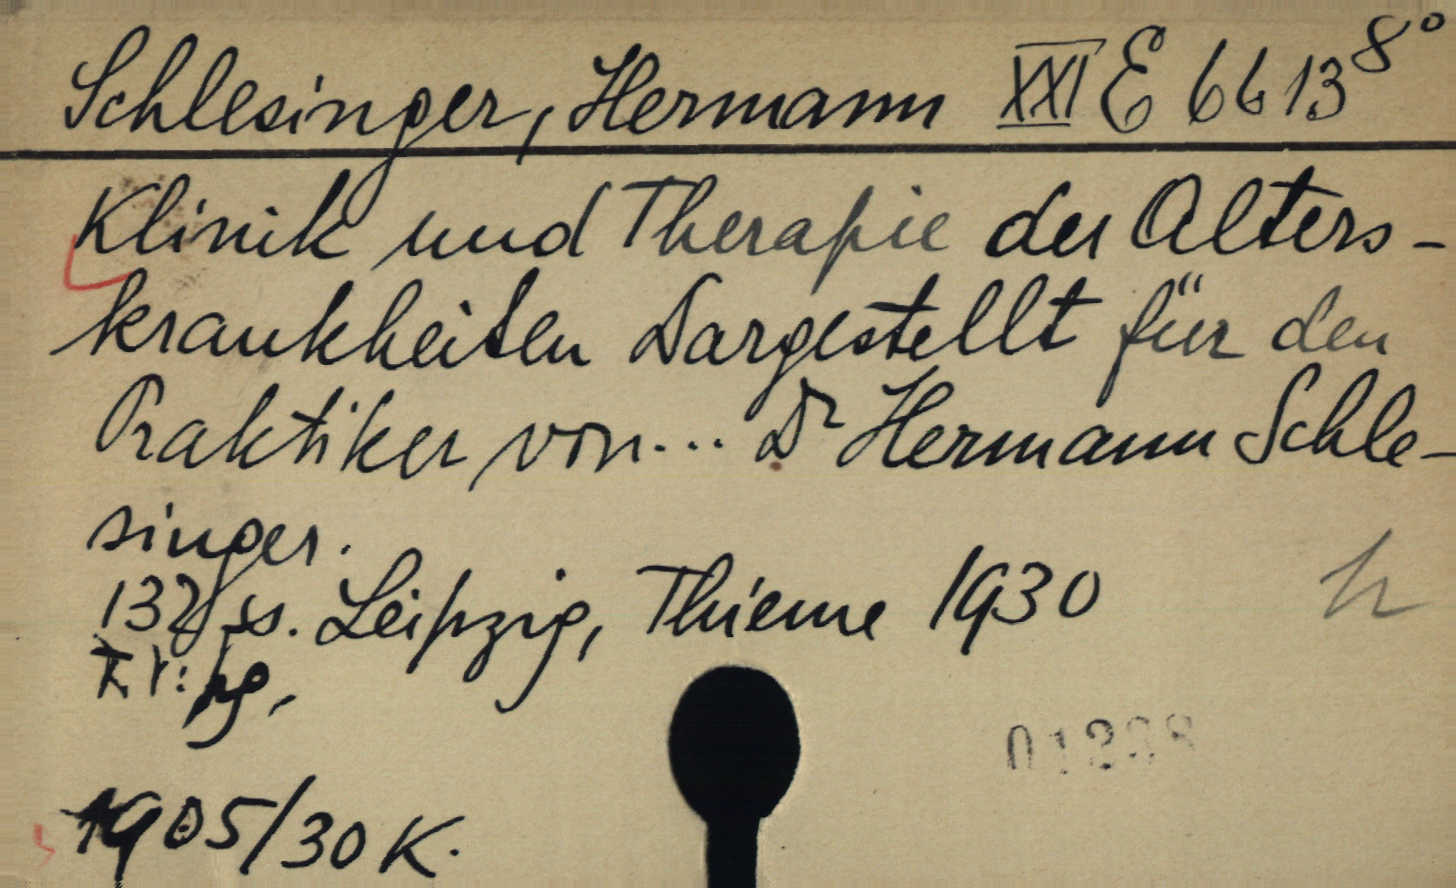 Schlesinger, Hermann XXI E 6613 8°
Klinik und Therapie der Alters-
krankheiten Dargestellt für den
Praktiker von... Dr Hermann Schle-
singer.
132 ss. Leipzig, Thieme 1930
h
1905/30 K.